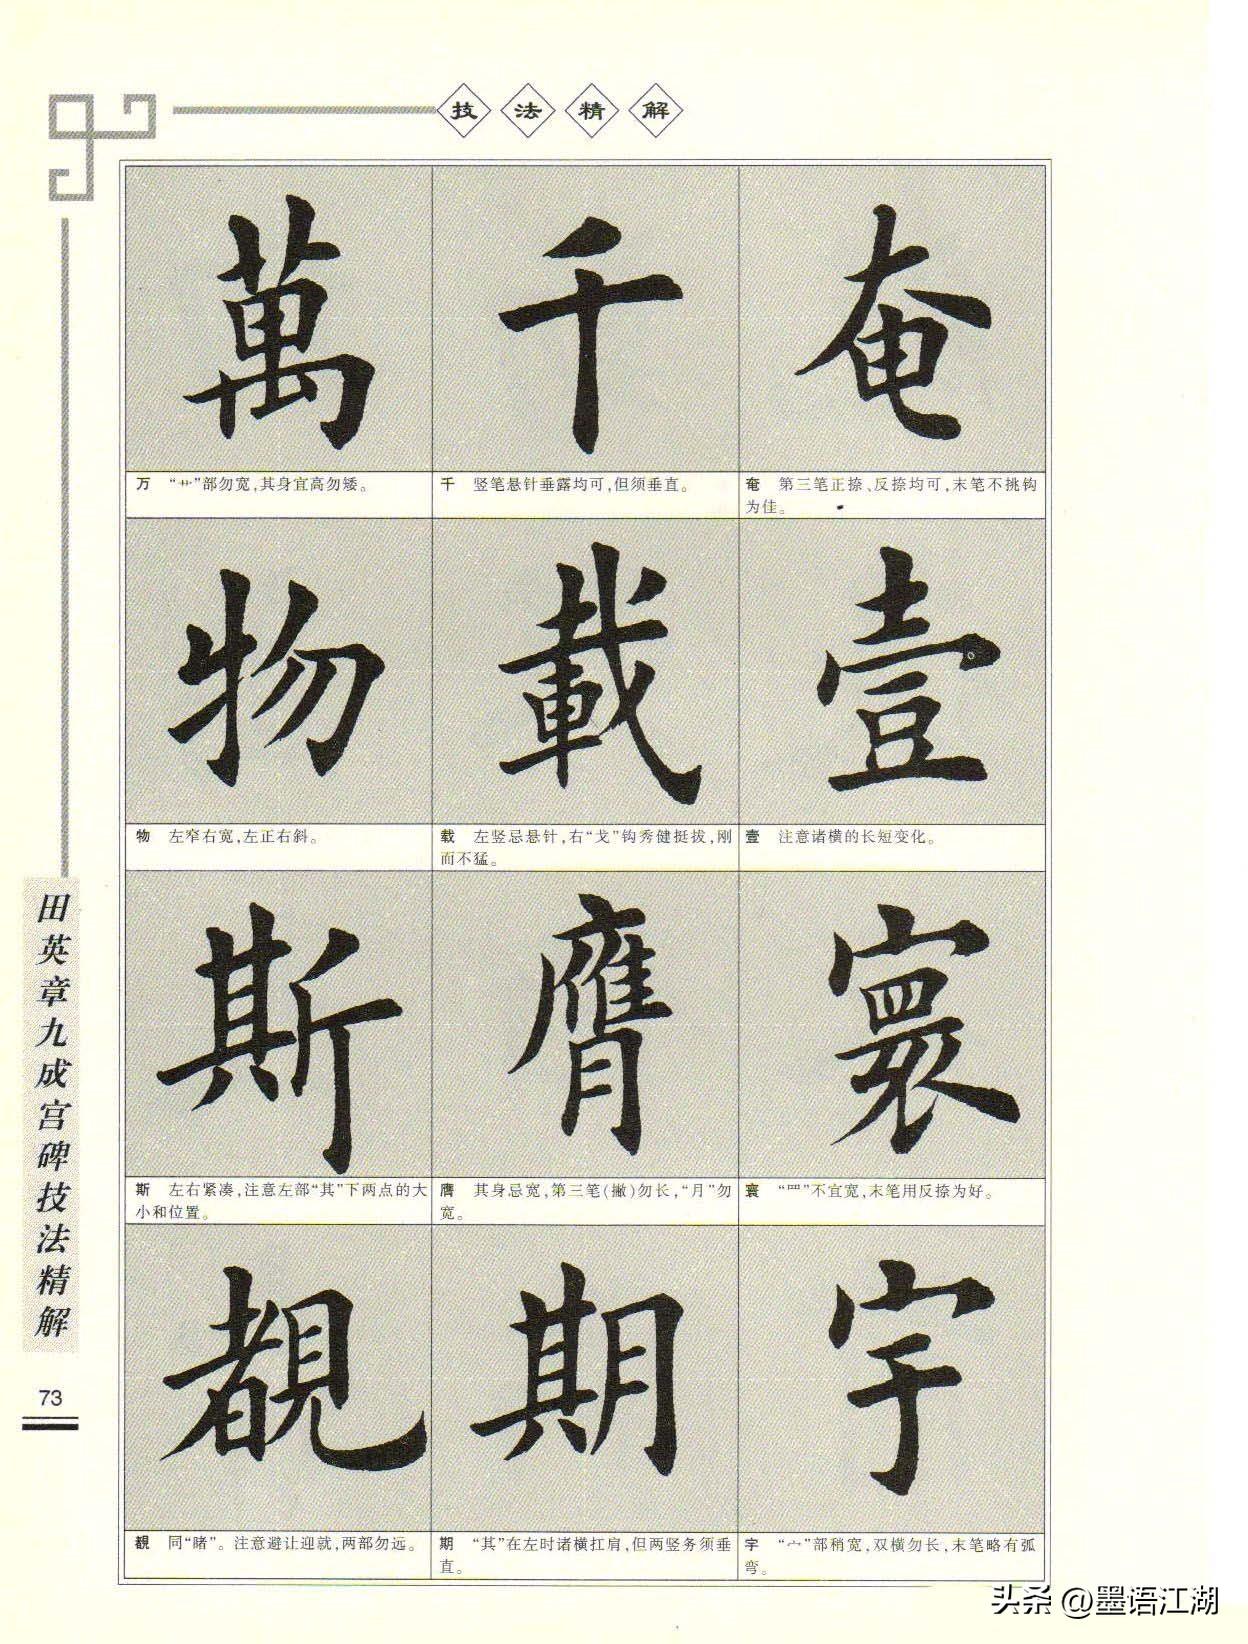 技法精解
萬
千
奄
万 “艹”部勿宽,其身宜高勿矮。
千 竖笔悬针垂露均可,但须垂直。
奄 第三笔正捺、反捺均可,末笔不挑钩
为佳。
物
載
壹
物 左窄右宽,左正右斜。
载 左竖忌悬针,右“戈”钩秀健挺拔,刚
而不猛。
壹 注意诸横的长短变化。
斯
膺
寰
斯 左右紧凑,注意左部“其”下两点的大
小和位置。
膺 其身忌宽,第三笔(撇)勿长,“月”勿
宽。
寰 “罒”不宜宽,末笔用反捺为好。
覩
期
宇
覩 同“睹”。注意避让迎就,两部勿远。
期 “其”在左时诸横扛肩,但两竖务须垂
直。
宇 “宀”部稍宽,双横勿长,末笔略有弧
弯。
田英章九成宫碑技法精解
73
头条 @墨语江湖